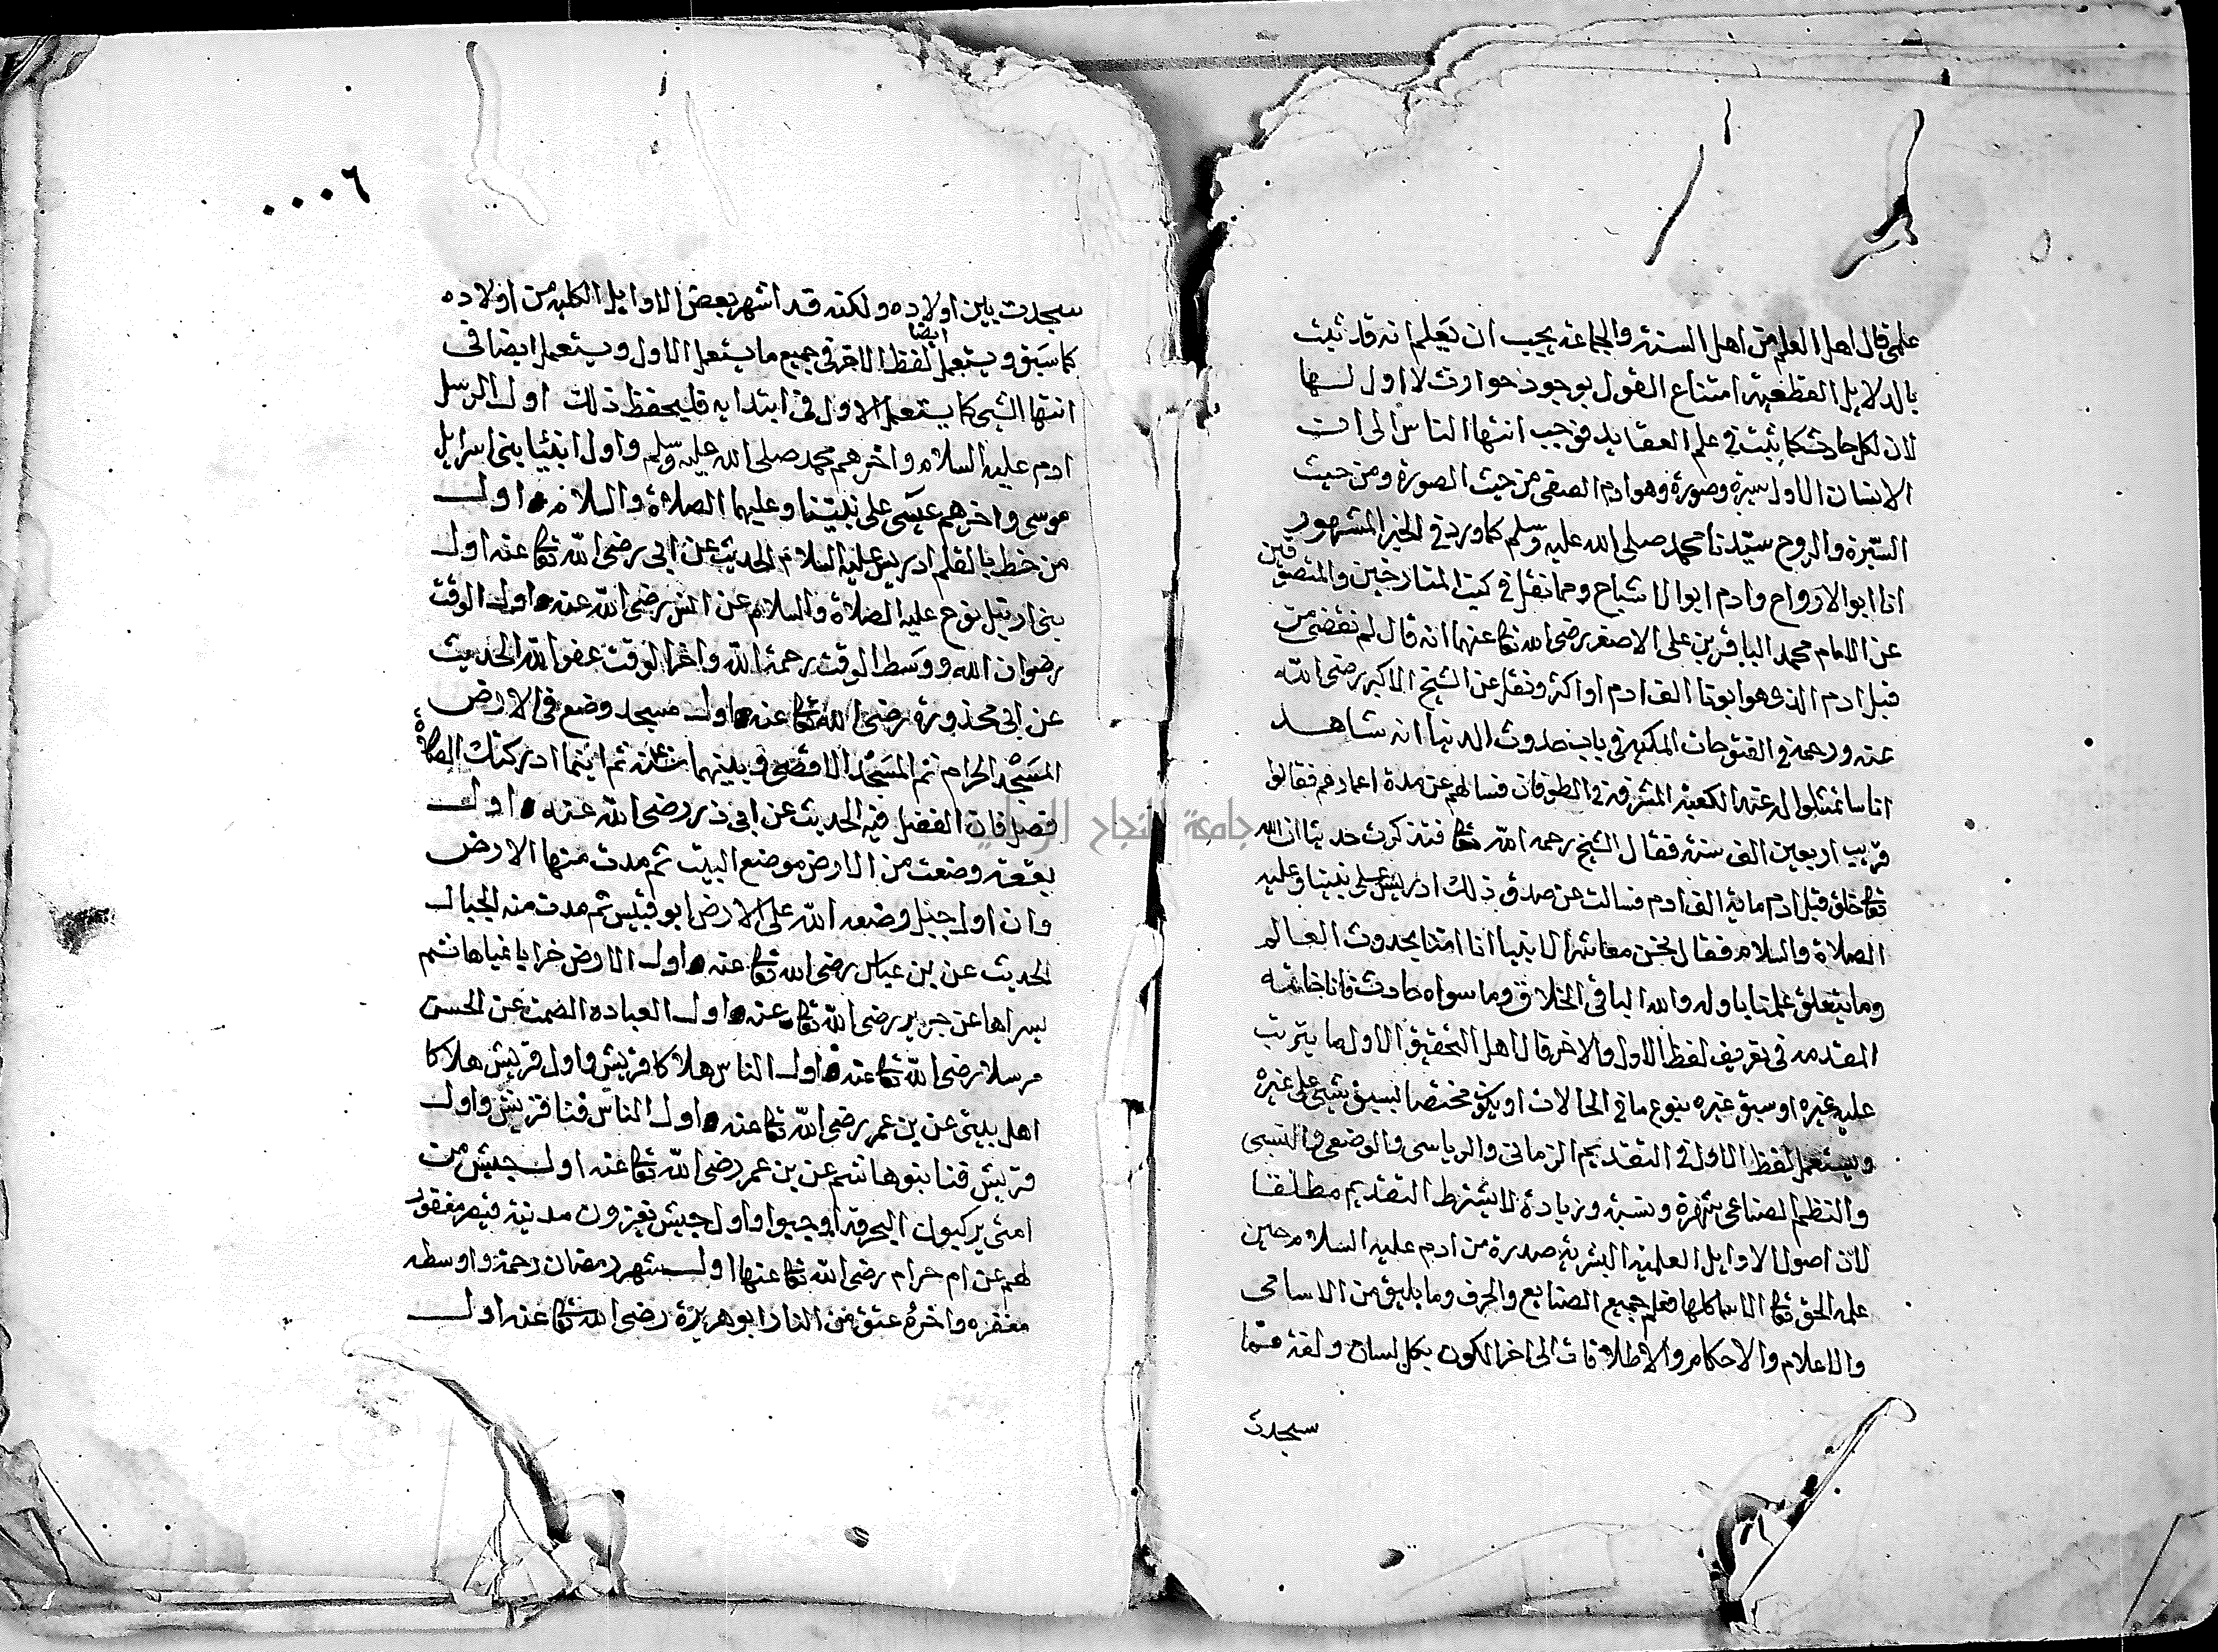 علمى قال اهل العلم من اهل السنة والجماعة يجب ان يعلم انه قد ثبت
بالدلايل القطعية امتناع القول بوجود حوادث لا اول لها
لان لكل حادث كما ثبت فى علم العقايد فوجب انتها الناس الى ات
الانسان الاول سيرة وصورة وهو ادم الصفى من حيث الصورة ومن حيث
السيرة والروح سيدنا محمد صلى الله عليه وسلم كما ورد فى الخبر المشهور
انا ابو الارواح وادم ابو الاشباح ومما نقل فى كتب المتارخين والمتصوفين
عن الامام محمد الباقر بن على الاصغر رضى الله تعا عنهما انه قال لم نقضى من
قبل ادم الذى هو ابونا الف ادم او اكثر ونقل عن الشيخ الاكبر رضى الله
عنه ورحمة فى الفتوحات المكية فى باب حدوث الدنيا انه شاهد
اناسا تمثلوا له عند الكعبة المشرفة فى الطوفان فسالهم عن مدة اعمارهم فقالوا
قريب اربعين الف سنة فقال الشيخ رحمه الله تعا فتذكرت حديثا ان الله
تعا خلق قبل ادم ماية الف ادم فسالت عن صدق ذلك ادريس على نبينا وعليه
الصلاة والسلام فقال نحن معاشر الانبيا انا امنا بحدوث العالم
وما يتعلق علمنا باوله والله الباقى الخلاق وما سواه حادث فانا خاتمه
المقدمه فى تعريف لفظ الاول والاخر قال اهل التحقيق الاول ما يترتب
عليه غيره او سبق غيره بنوع ما فى الحالات او يكون مختصا لسبق شيى على غيره
ويستعمل لفظ الاول فى التقديم الزمانى والرياسى والوضعى والنسبى
والنظم الصناعى شهرة ونسبة وزيادة لا يشترط التقديم مطلقا
لان اصول الاوايل العلمية البشرية صدرة من ادم عليه السلام حين
علمه الحق تعا الاسما كلها فعلم جميع الصنايع والحرف وما يليق من الاسامى
والاعلام والاحكام والاطلاقات الى اخر الكون بكل لسان ولغة مما
سبجدت
٠٠٠٦
سبجدت بين اولاده ولكنه قد اشهر بعض الاوايل الكلية من اولاده
كما سبق ويستعمل لفظ الاخر ايضا فى جميع ما يستعمل الاول ويستعمل ايضا فى
انتها الشيى كما يستعمل الاول فى ابتدايه فليحفظ ذلك اول الرسل
ادم عليه السلام واخرهم محمد صلى الله عليه وسلم واول انبيا بنى اسرايل
موسى واخرهم عيسى على نبينا وعليهما الصلاة والسلام اول
من خط بالقلم ادريس عليه السلام الحديث عن ابى رضى الله تعا عنه اول
نبى ارسل نوح عليه الصلاة والسلام عن انس رضى الله عنه اول الوقت
رضوان الله ووسط الوقت رحمة الله واخر الوقت عفو الله الحديث
عن ابى محذورة رضى الله تعا عنه اول مسجد وضع فى الارض
المسجد الحرام ثم المسجد الاقصى وبينهما سنة ثم اينما ادركتك الصلاة
فصل فان الفضل فيه الحديث عن ابى ذر رضى الله عنه اول
بقعة وضعت من الارض موضع البيت ثم مدت منها الارض
وان اول جبل وضعه الله على الارض ابو قبيس ثم مدت منه الجبال
الحديث عن بن عباس رضى الله تعا عنه اول الارض خرابا يمناها ثم
يسراها عن جرير رضى الله تعا عنه اول العباده الصمت عن الحسن
مرسلا رضى الله تعا عنه اول الناس هلاكا قريش واول قريش هلاكا
اهل بيتى عن بن عمر رضى الله تعا عنه اول الناس فنا قريش واول
قريش فنا بنو هاشم عن بن عمر رضى الله تعا عنه اول جيش من
امتى يركبون البحر قد اوجبوا واول جيش يغزون مدينة قيصر مغفور
لهم عن ام حرام رضى الله تعا عنها اول شهر رمضان رحمة واوسطه
مغفره واخره عتق من النار ابو هريرة رضى الله تعا عنه اول